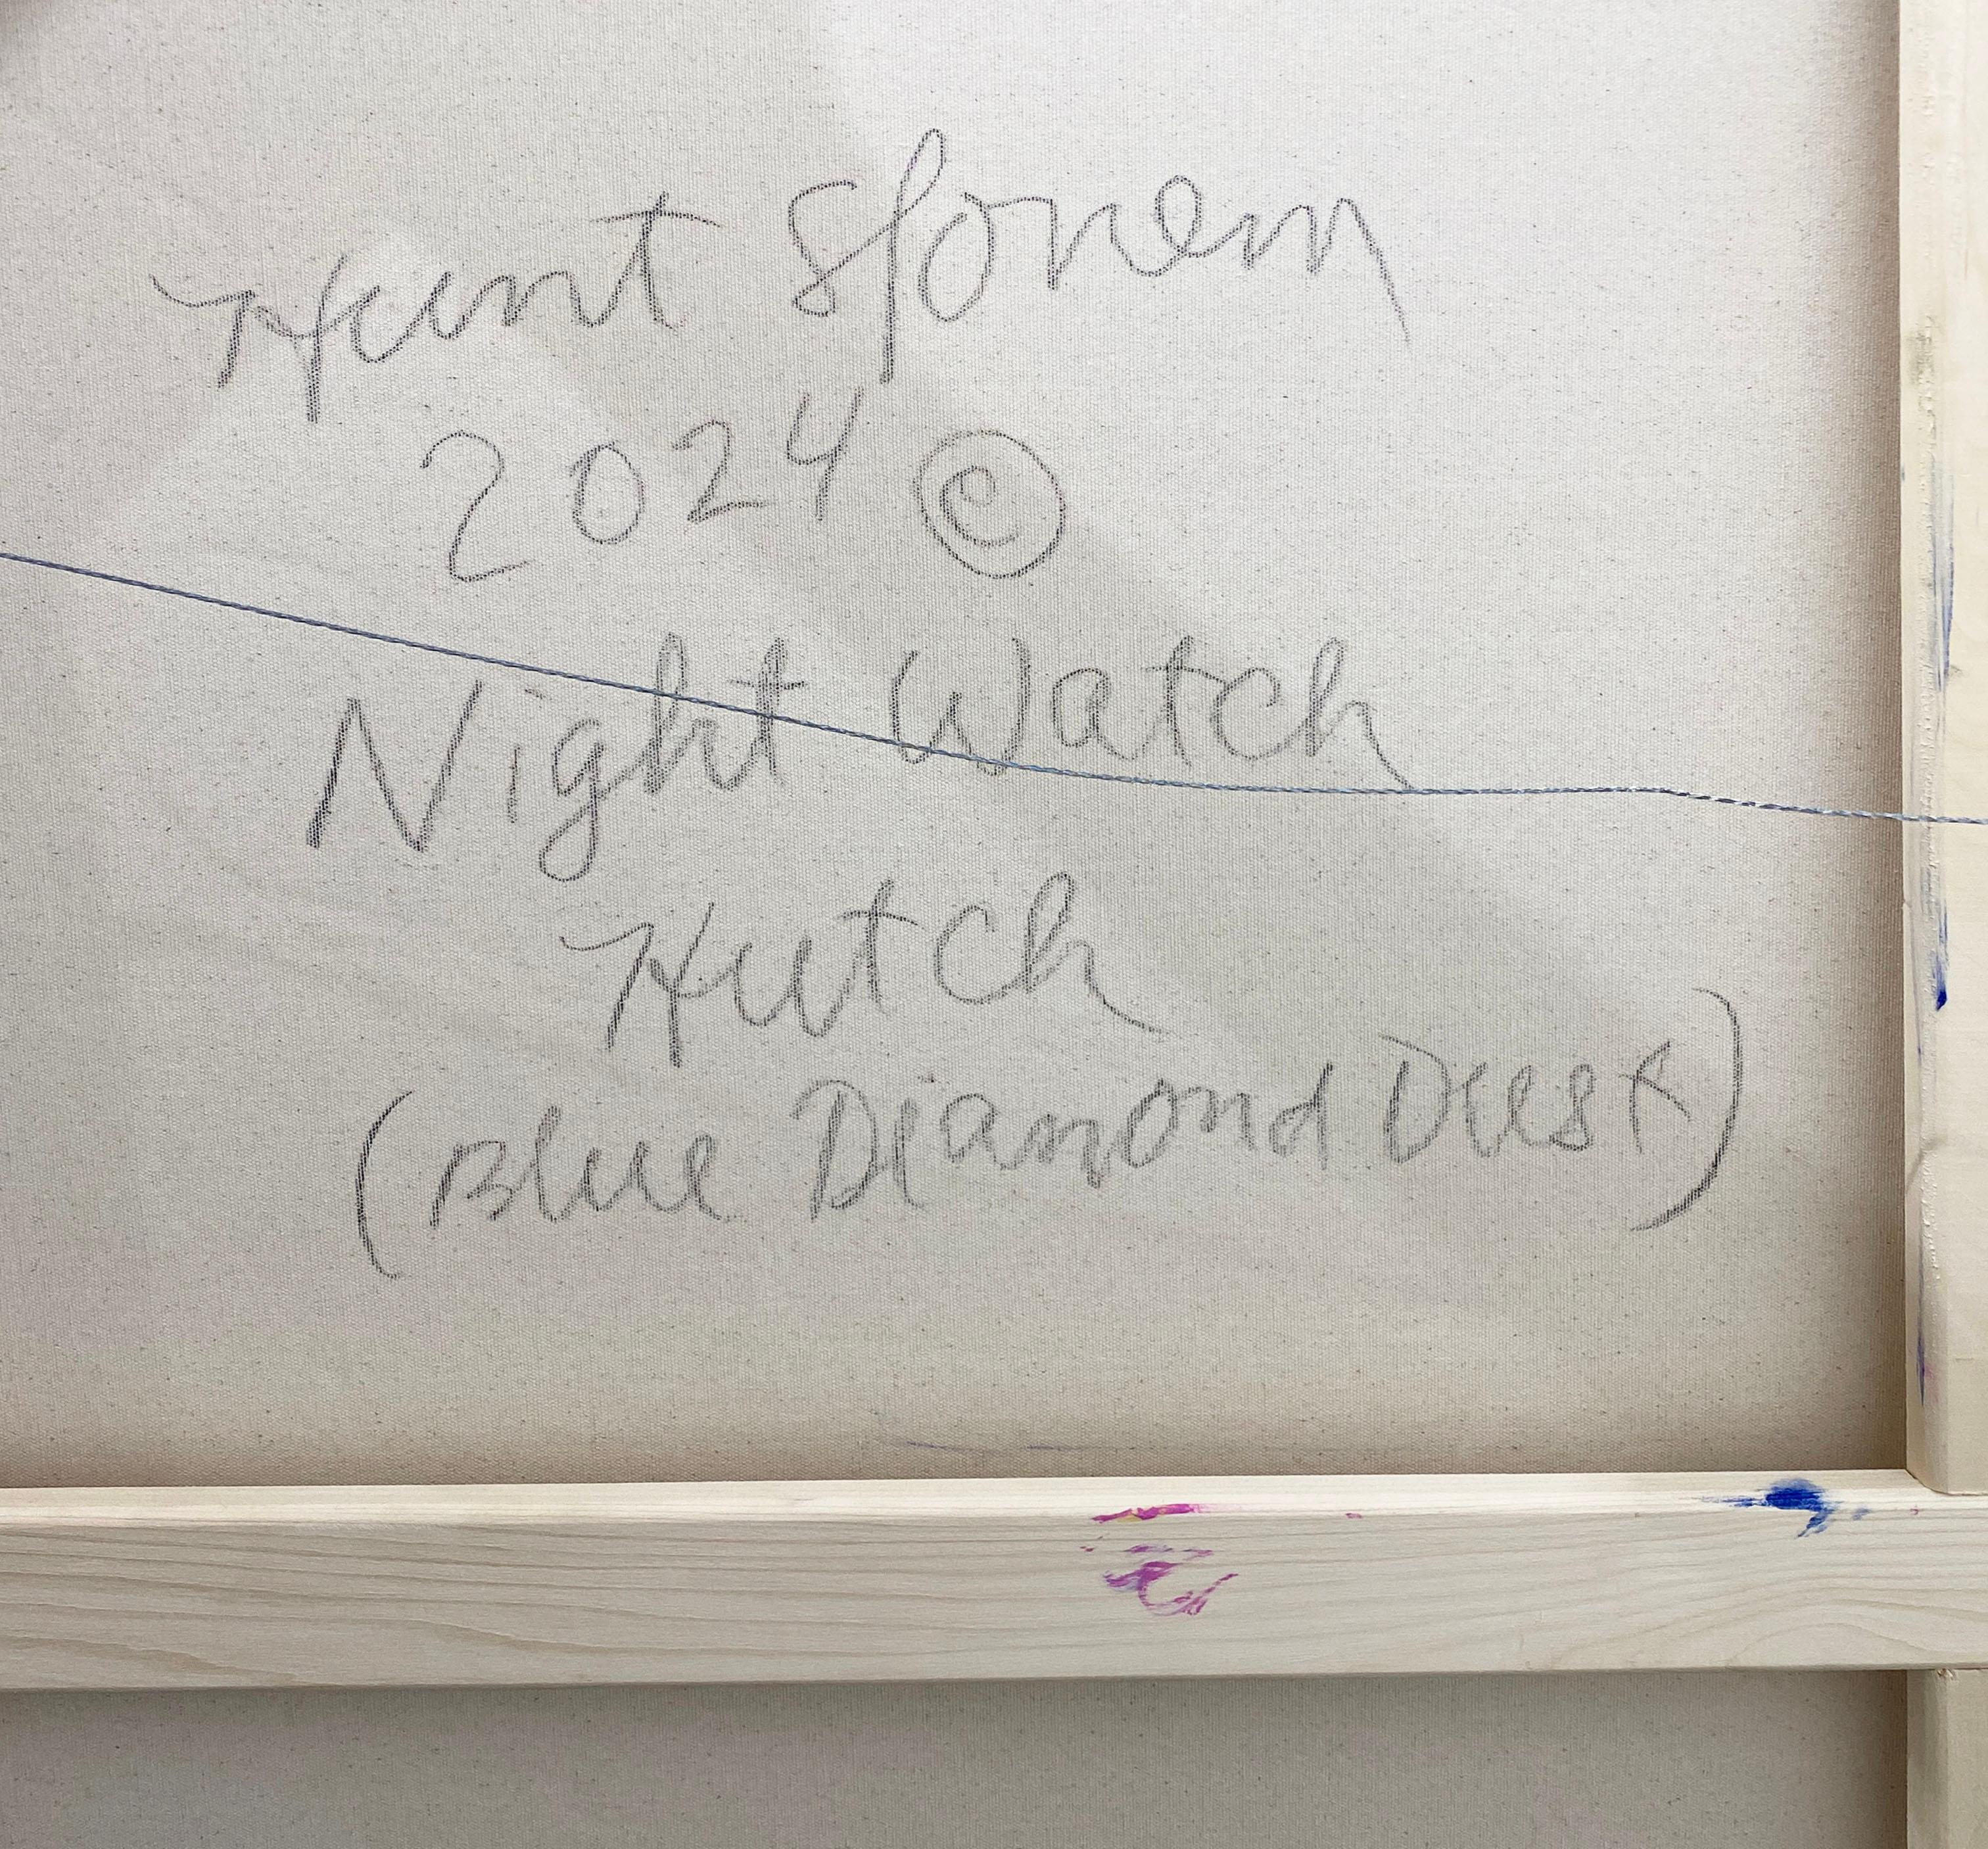 Hunt Slonem
2024 ©
Night Watch
Hutch
(Blue Diamond Dust)